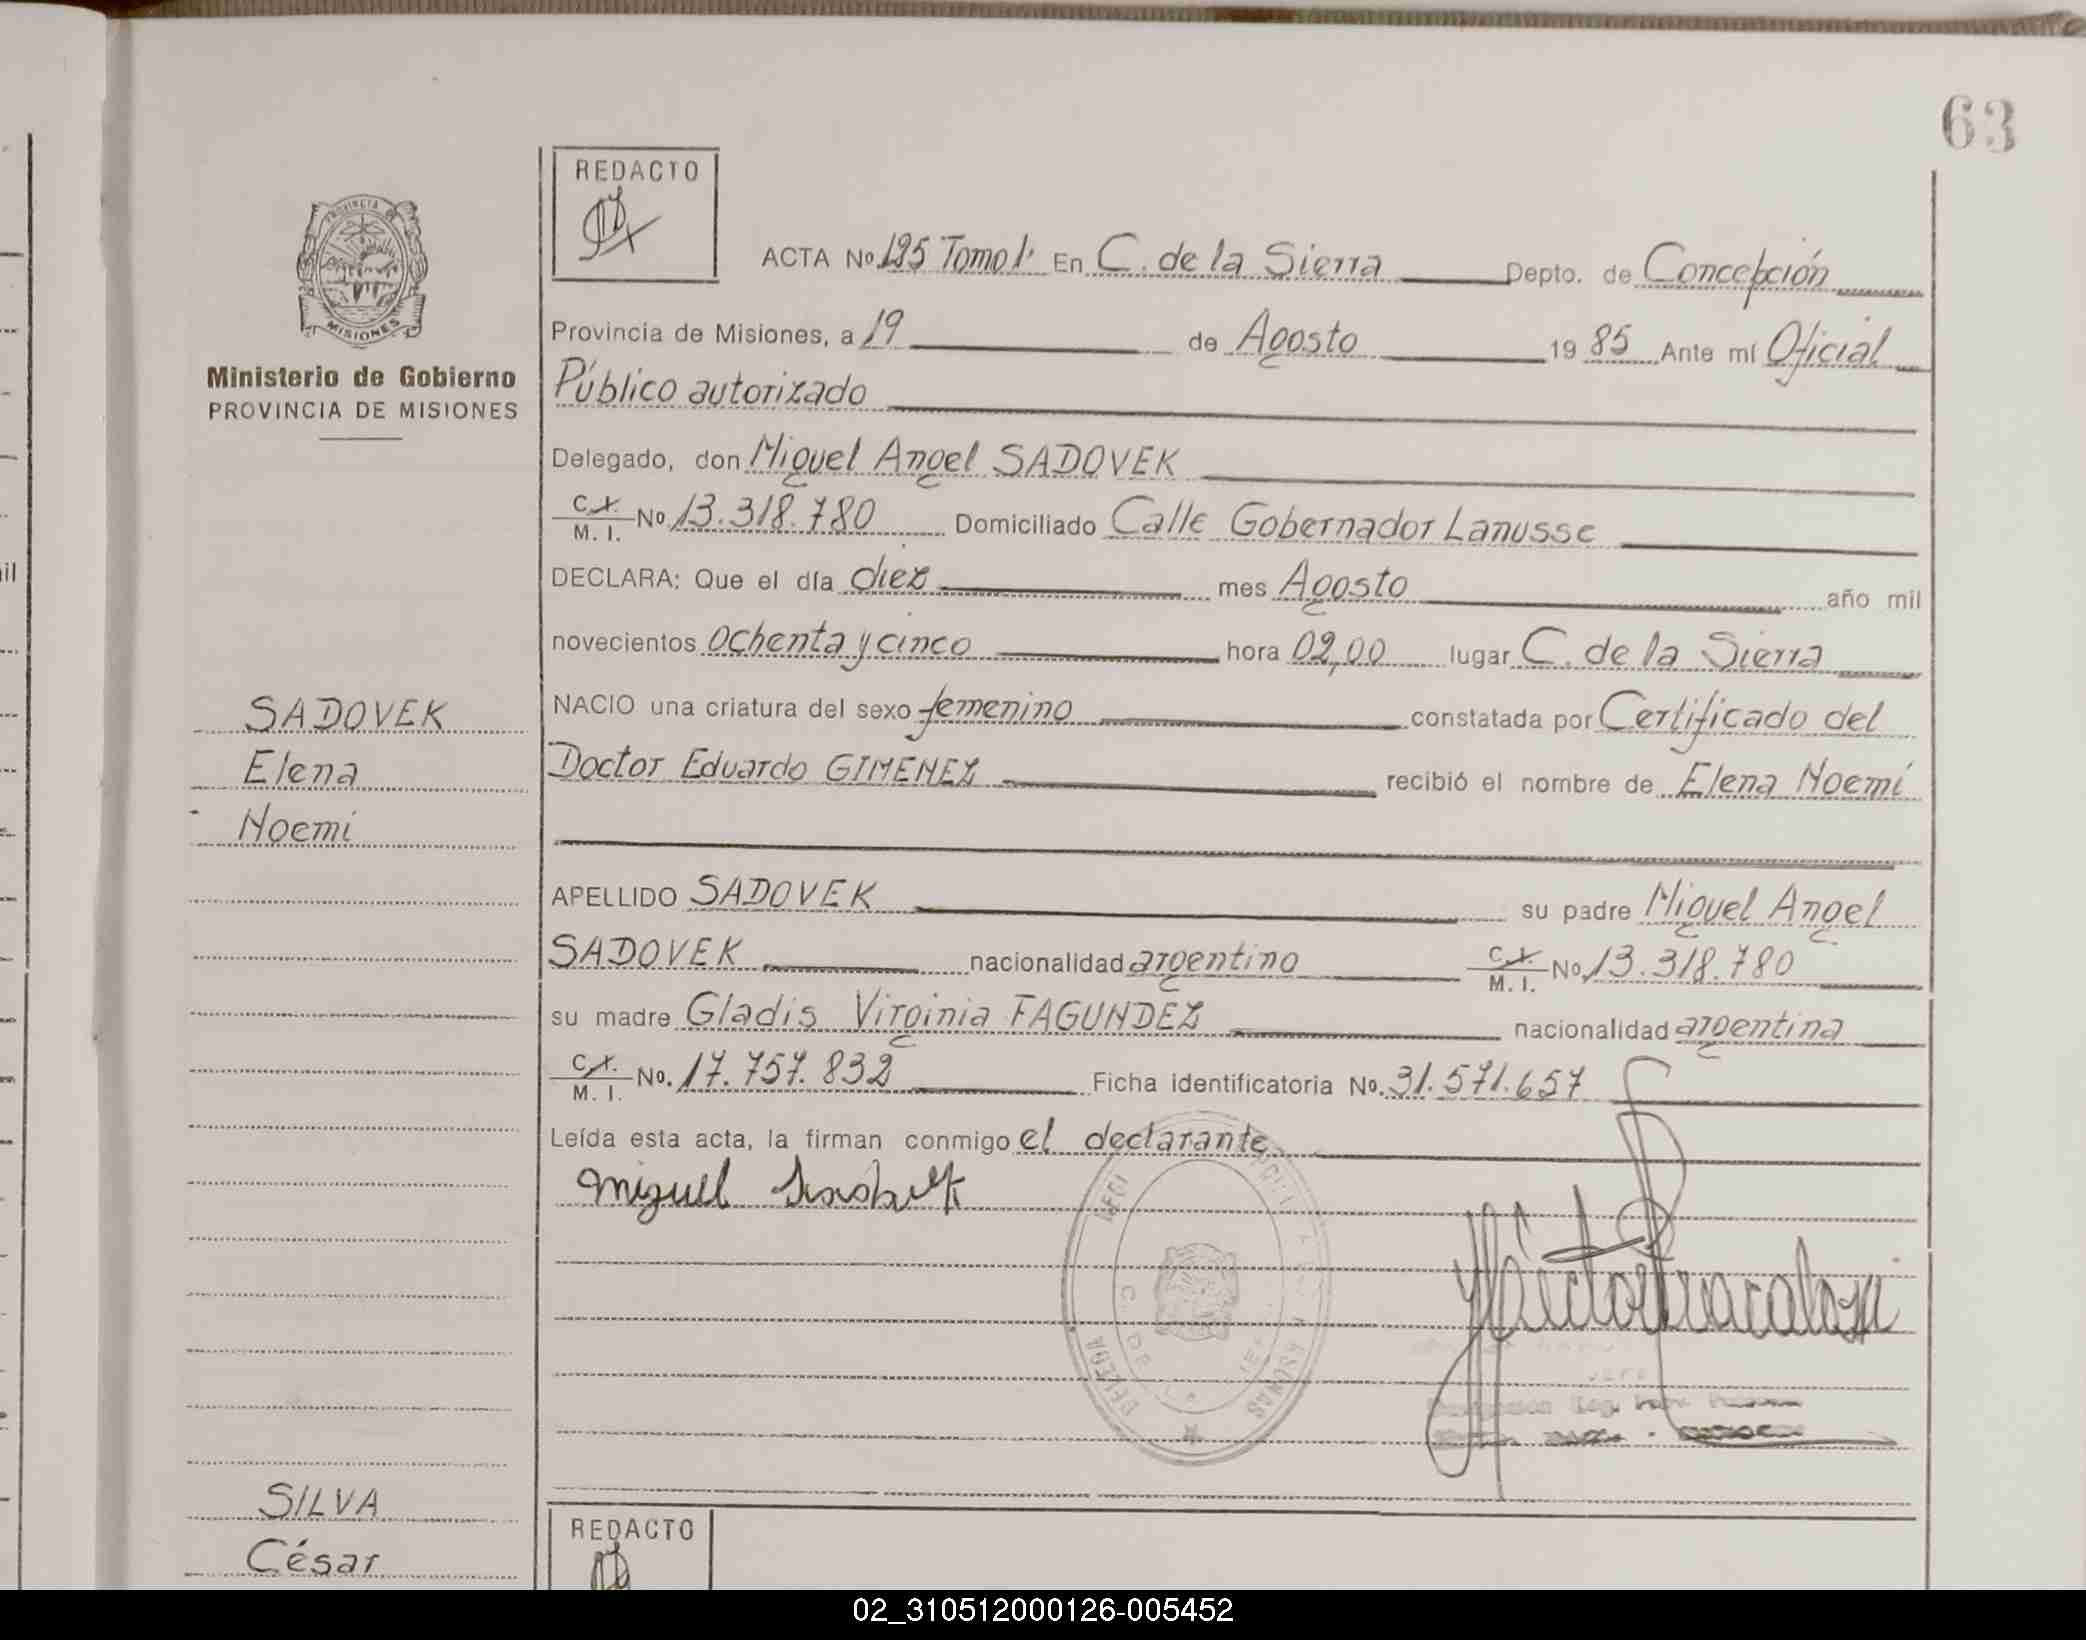 63
PROVINCIA DE
MISIONES
Ministerio de Gobierno
PROVINCIA DE MISIONES
REDACTO
ACTA Nº 195 Tomo 1º En C. de la Sierra Depto. de Concepción
Provincia de Misiones, a 19 de Agosto 19 85 Ante mí Oficial
Público autorizado
Delegado, don Miguel Angel SADOVEK
C.I. M. I. Nº 13.318.780 Domiciliado Calle Gobernador Lanusse
DECLARA: Que el día diez mes Agosto año mil
novecientos ochenta y cinco hora 02,00 lugar C. de la Sierra
NACIO una criatura del sexo femenino constatada por Certificado del
Doctor Eduardo GIMENEZ recibió el nombre de Elena Noemí
APELLIDO SADOVEK su padre Miguel Angel
SADOVEK nacionalidad argentino C.I. M. I. Nº 13.318.780
su madre Gladis Virginia FAGUNDEZ nacionalidad argentina
C.I. M. I. Nº. 17.757.832 Ficha identificatoria Nº. 31.571.657
Leída esta acta, la firman conmigo el declarante
Miguel
SADOVEK
Elena
Noemí
C. DE LA
SILVA
César
REDACTO
il
02_310512000126-005452